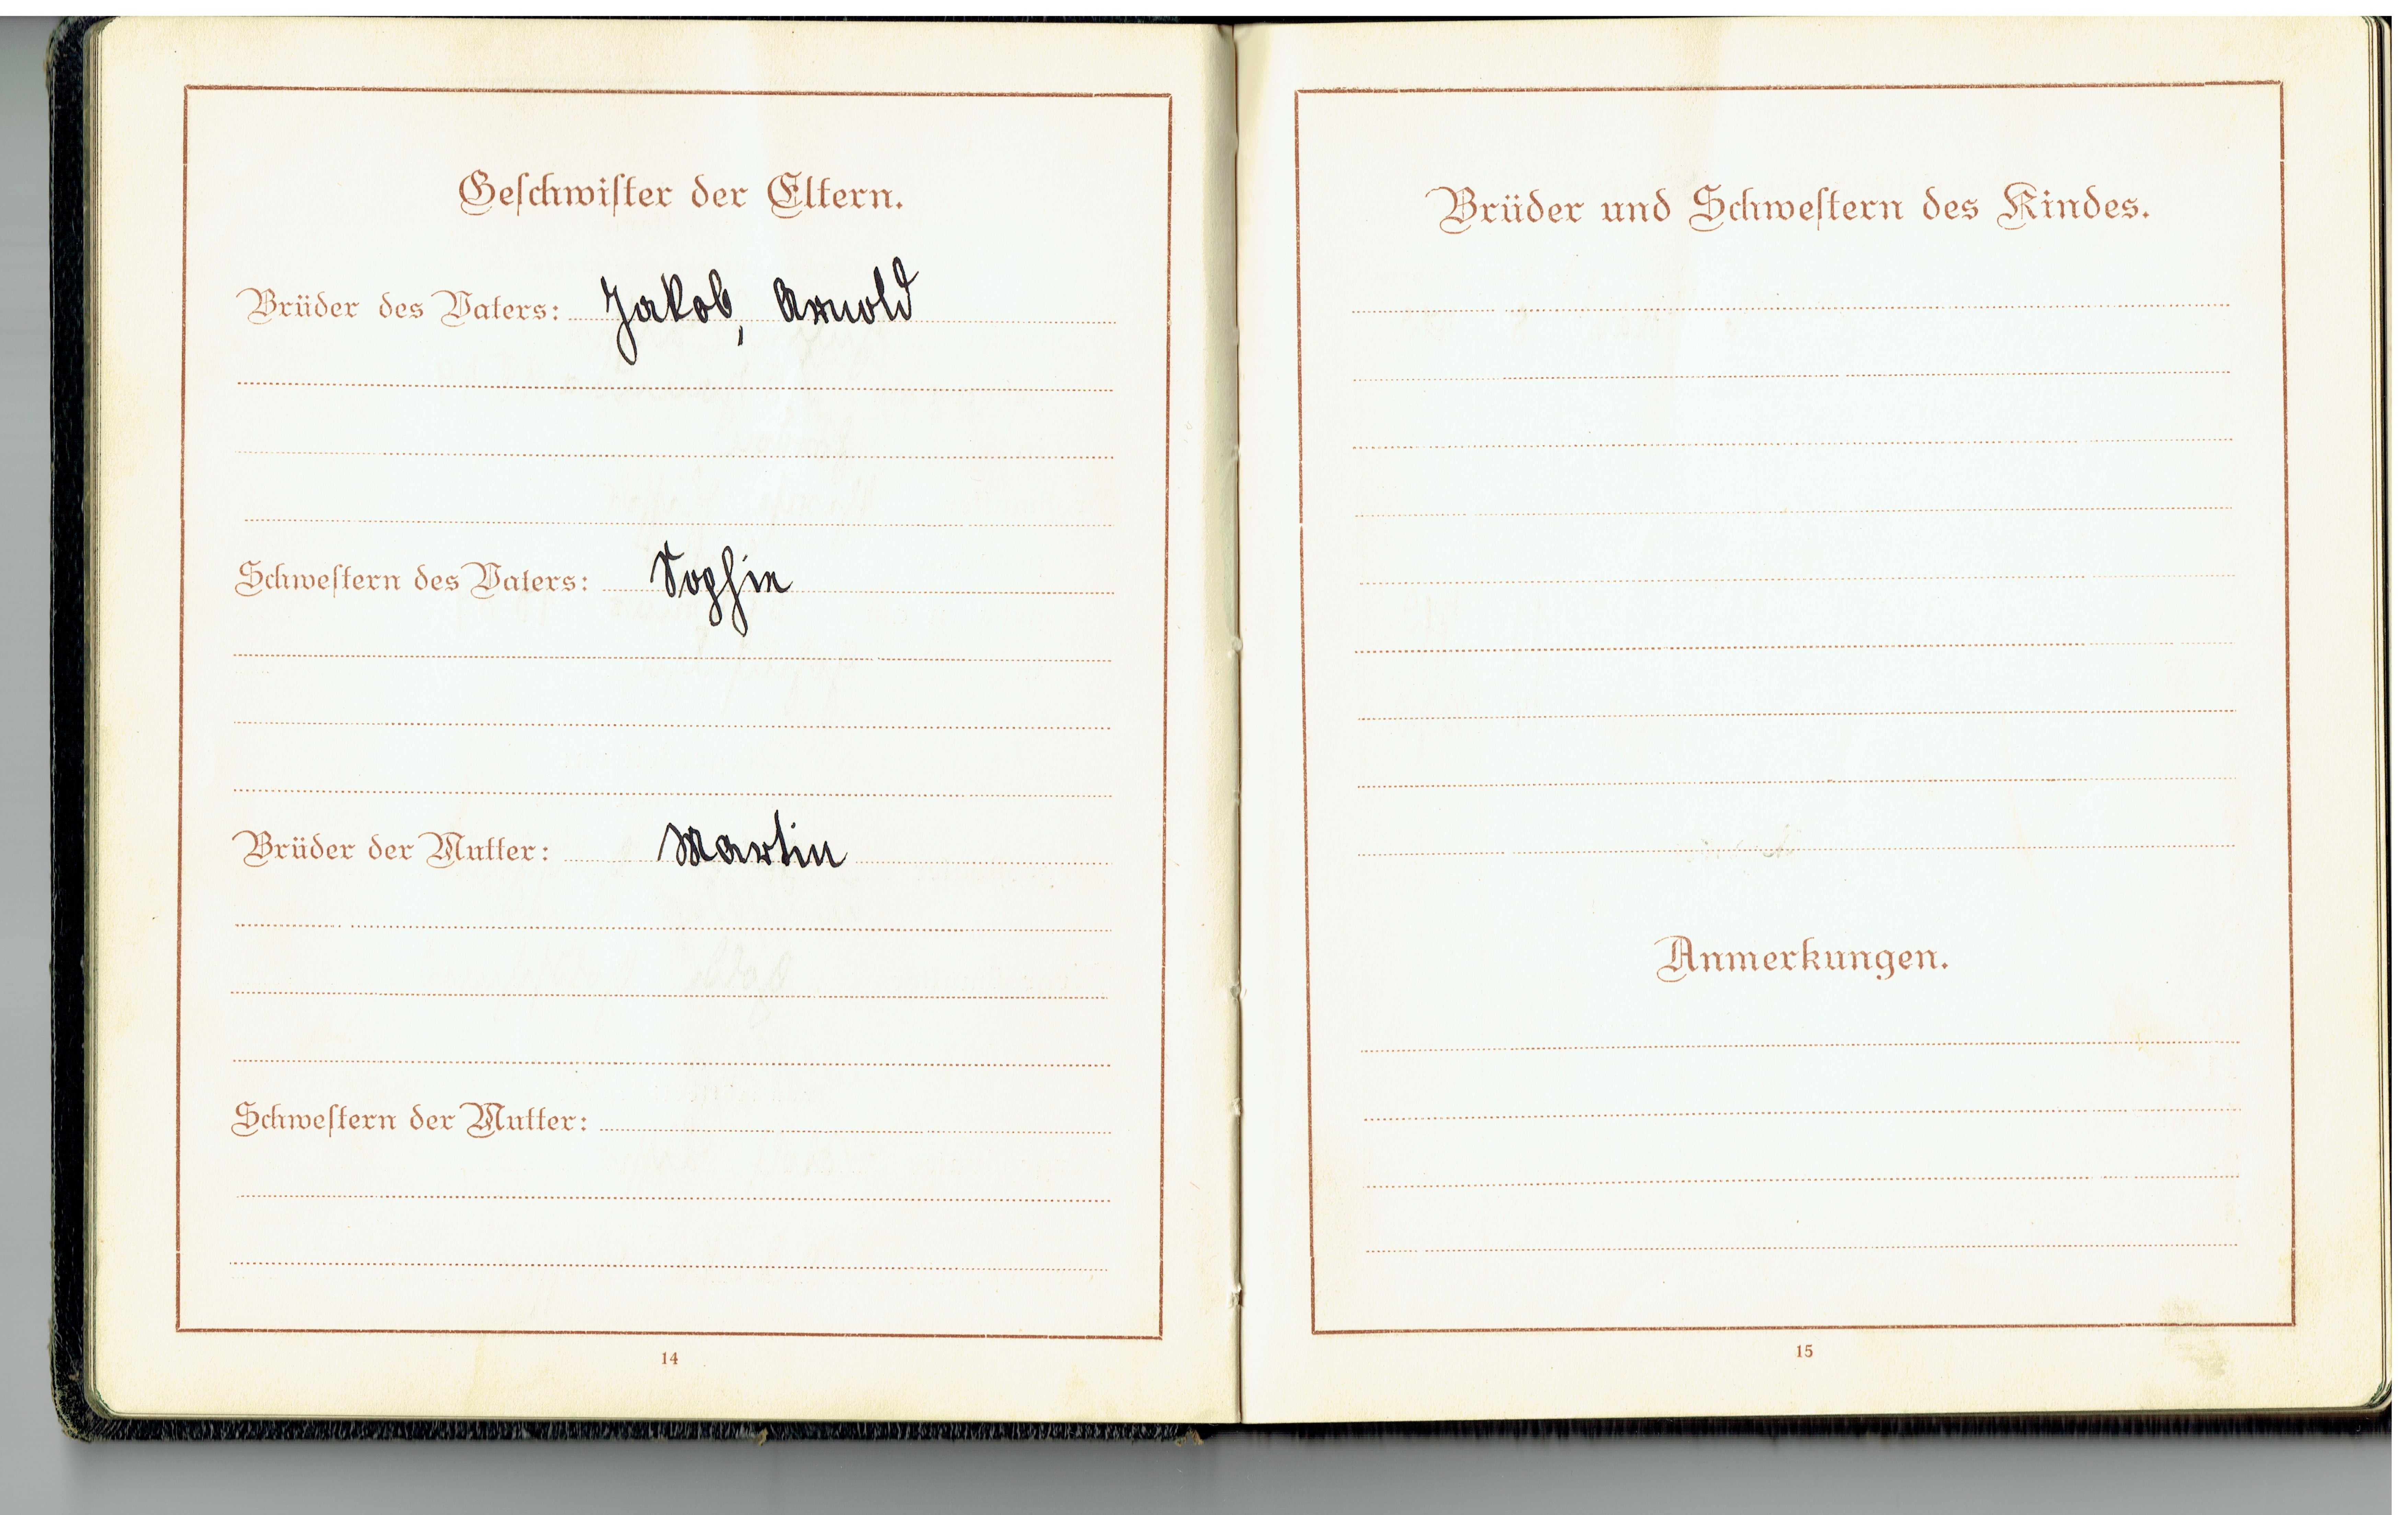 Geschwister der Eltern.
Brüder des Vaters: Jakob, Arnold
Schwestern des Vaters: Sophie
Brüder der Mutter: Martin
Schwestern der Mutter:
14
Brüder und Schwestern des Kindes.
Anmerkungen.
15